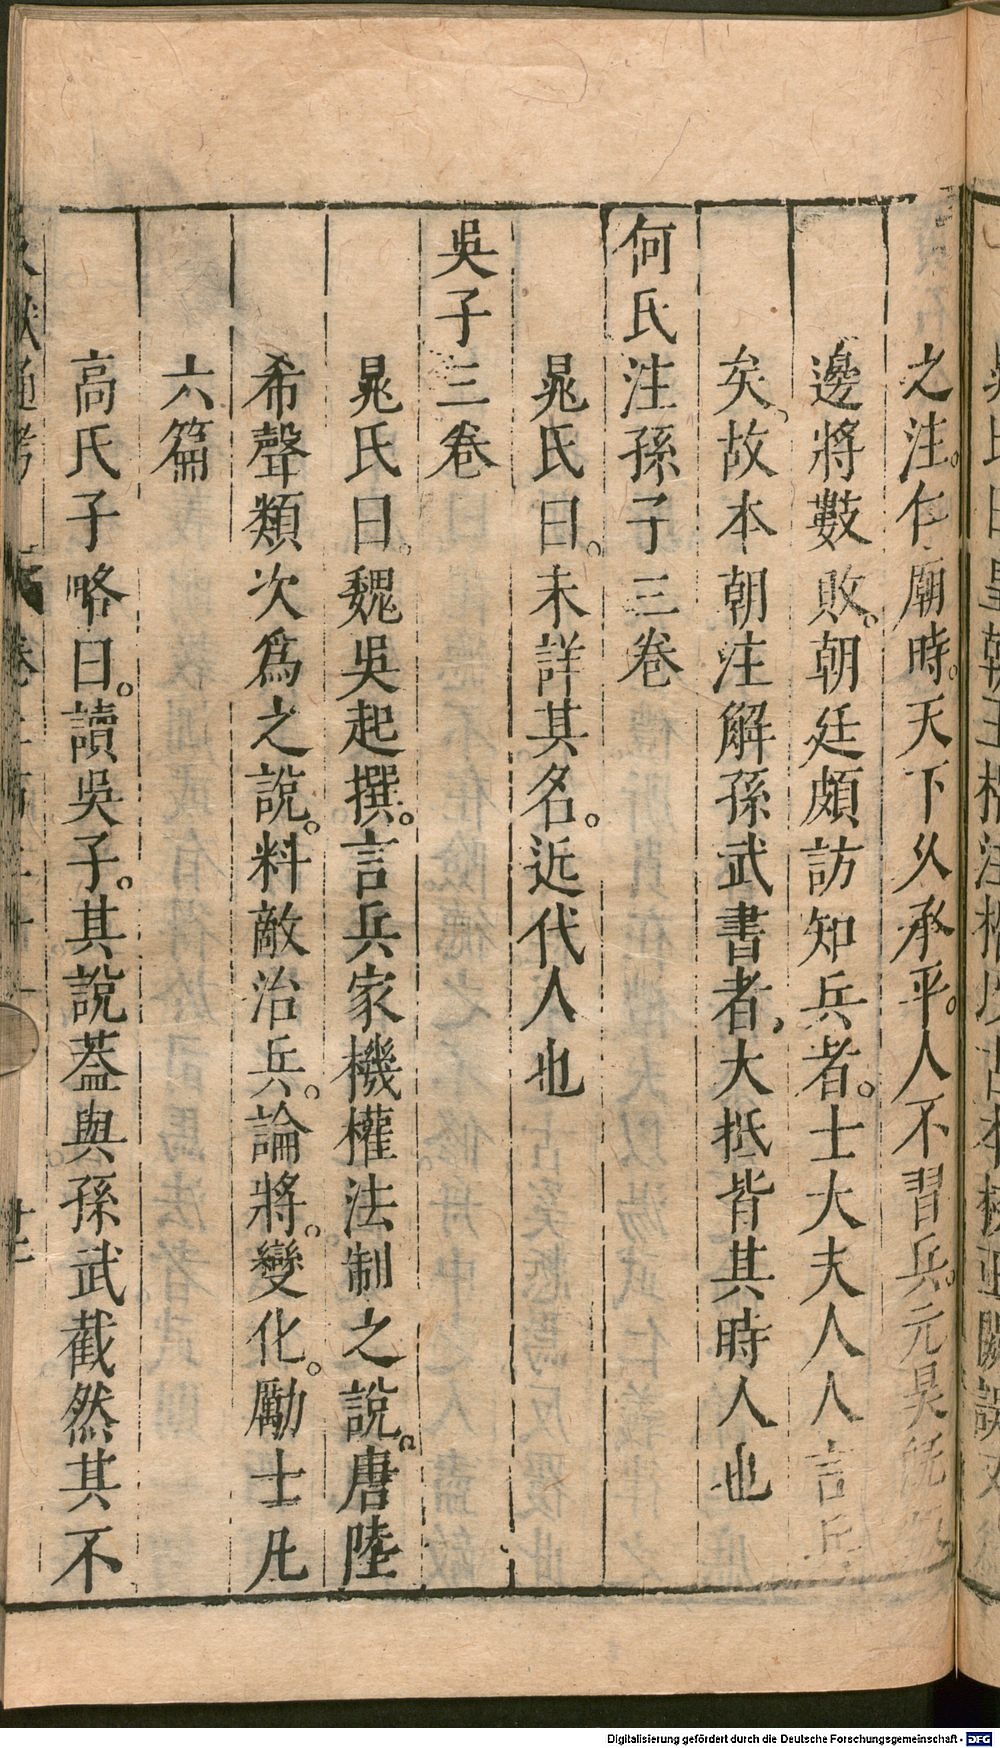 之注。仁廟時。天下久承平。人不習兵。元昊旣
邊將數敗。朝廷頗訪知兵者。士大夫人人言兵
矣。故本朝注解孫武書者，大抵皆其時人也
何氏注孫子三卷
晁氏曰。未詳其名。近代人也
吳子三卷
晁氏曰。魏吳起撰。言兵家機權法制之說。唐陸
希聲類次爲之說。料敵治兵。論將。變化。勵士凡
六篇
高氏子略曰。讀吳子。其說蓋與孫武截然其不
Digitalisierung gefördert durch die Deutsche Forschungsgemeinschaft - DFG